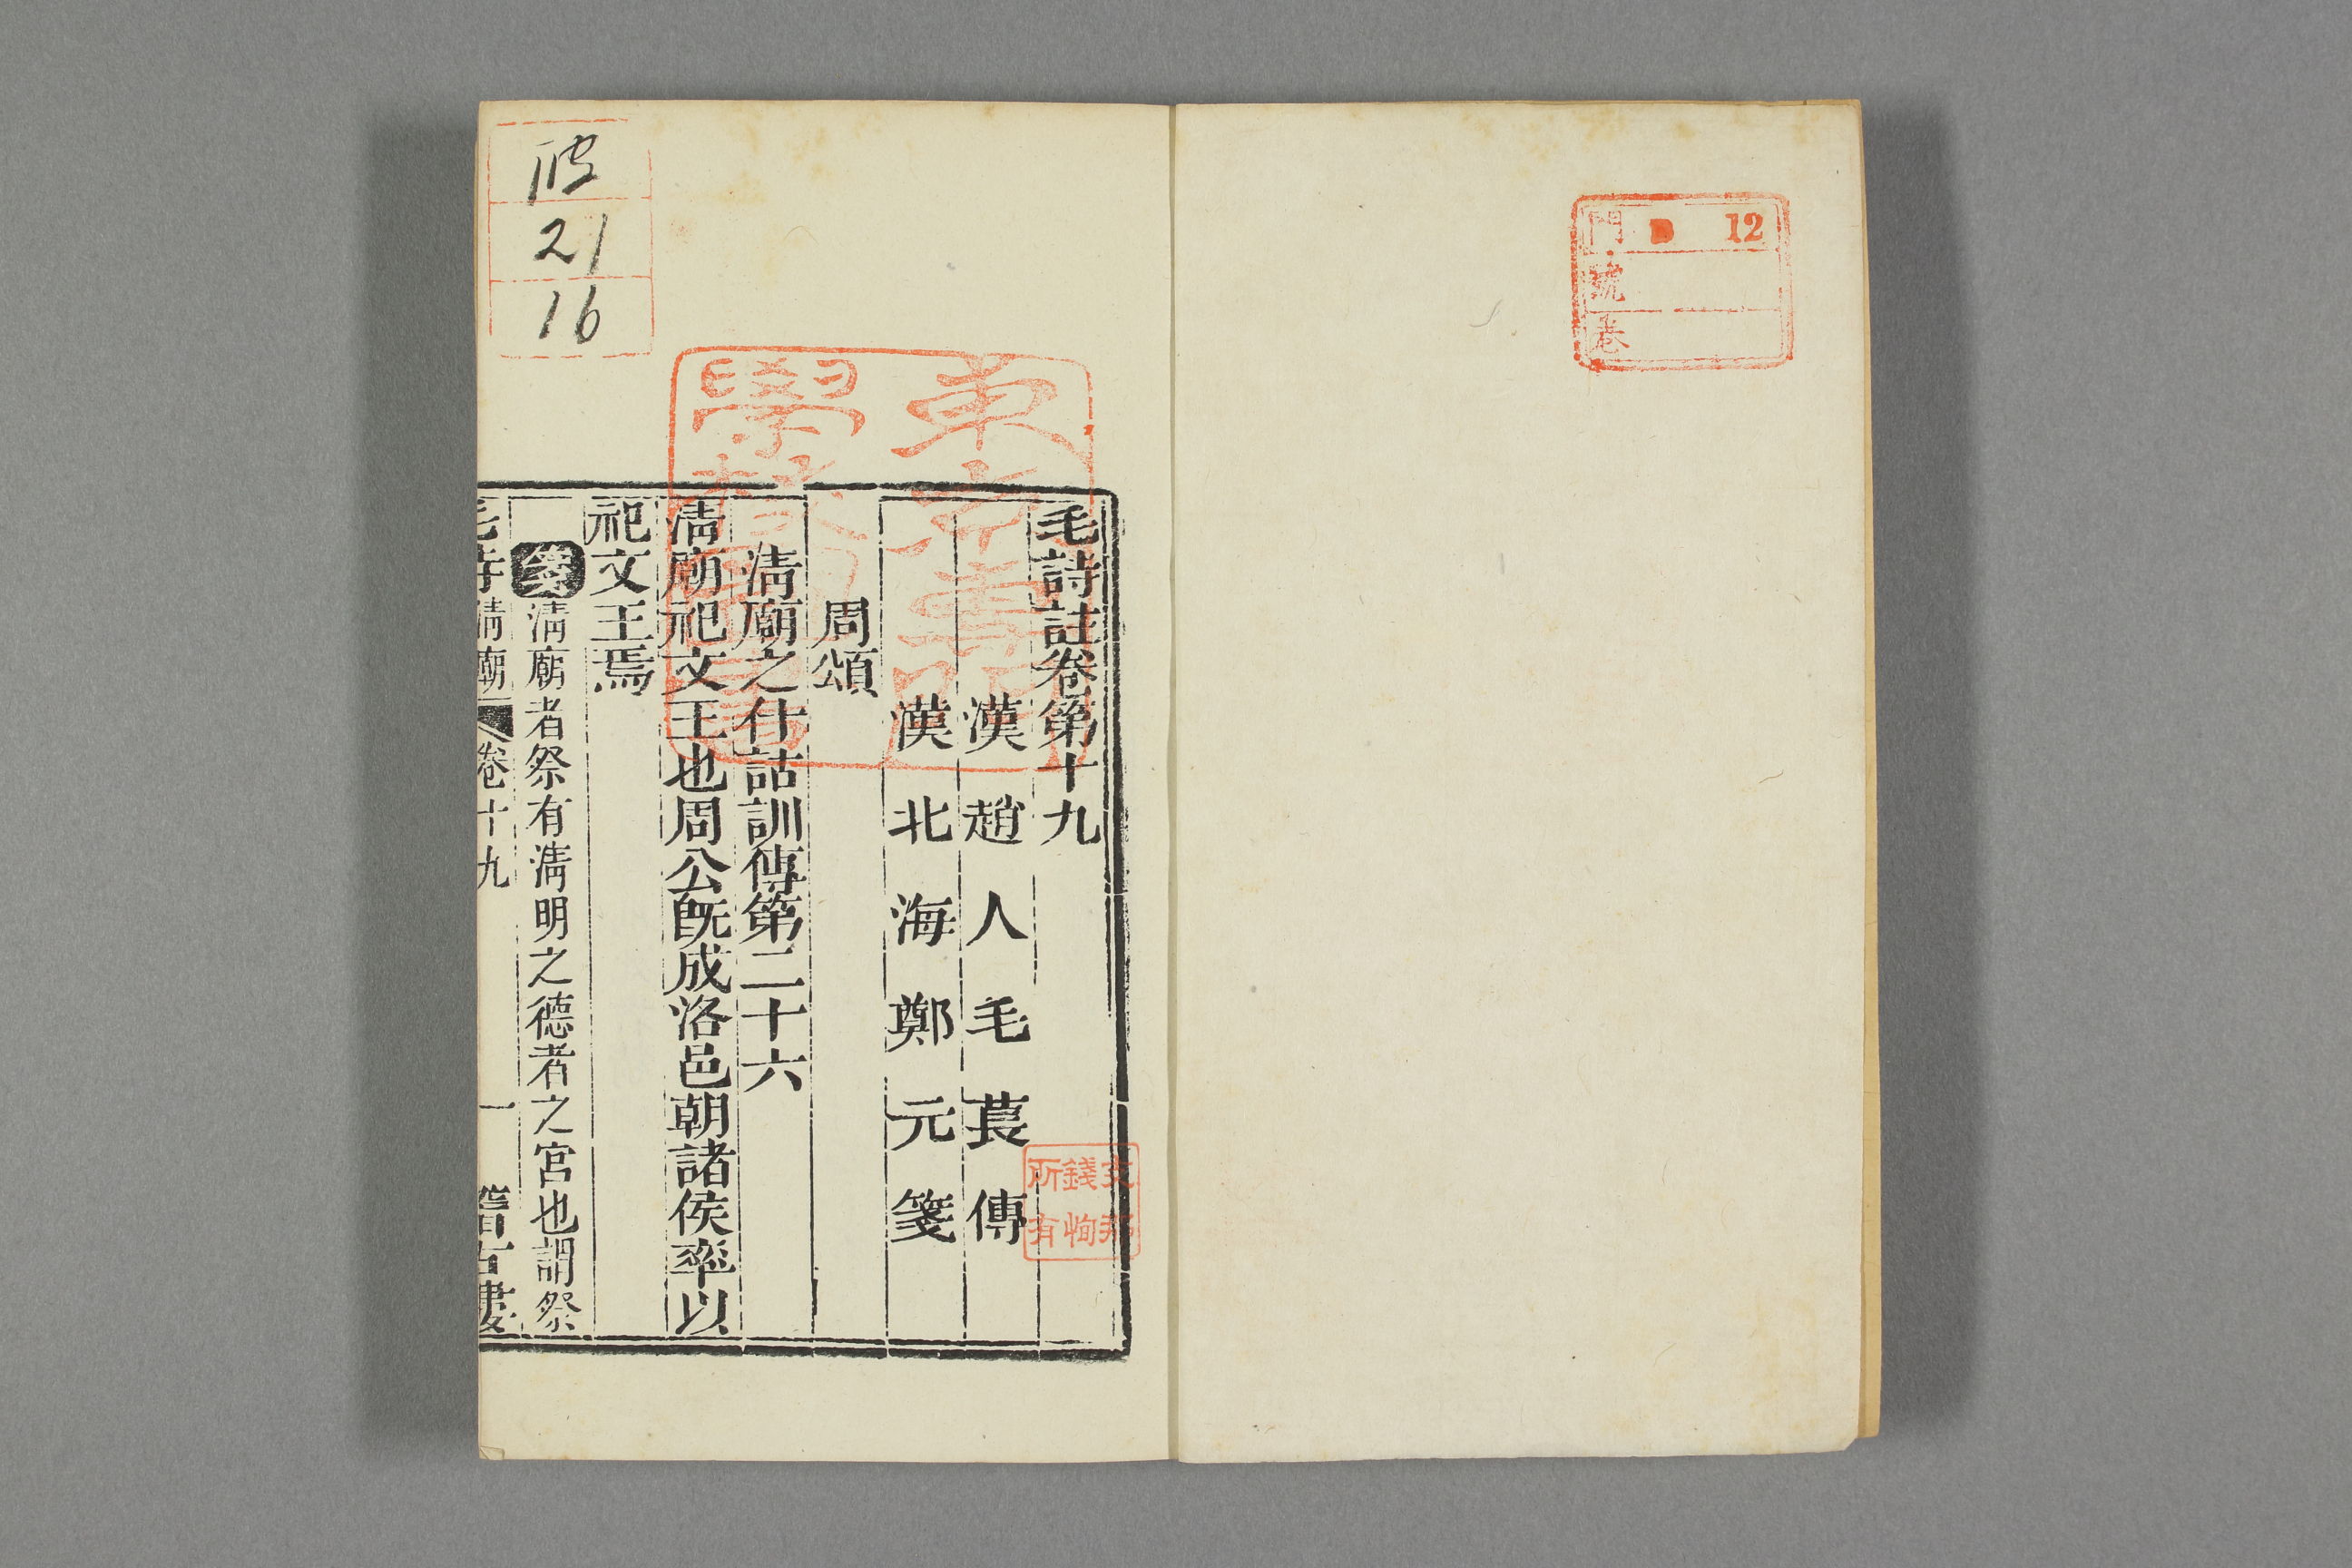 12
門
號
巻
21
16
毛詩註卷第十九
漢趙人毛萇傳
漢北海鄭元箋
周頌
淸廟之什詁訓傳第二十六
淸廟祀文王也周公旣成洛邑朝諸侯率以
祀文王焉
箋淸廟者祭有淸明之德者之宮也謂祭
毛詩淸廟 卷十九 一 稽古樓
錢恂
所有